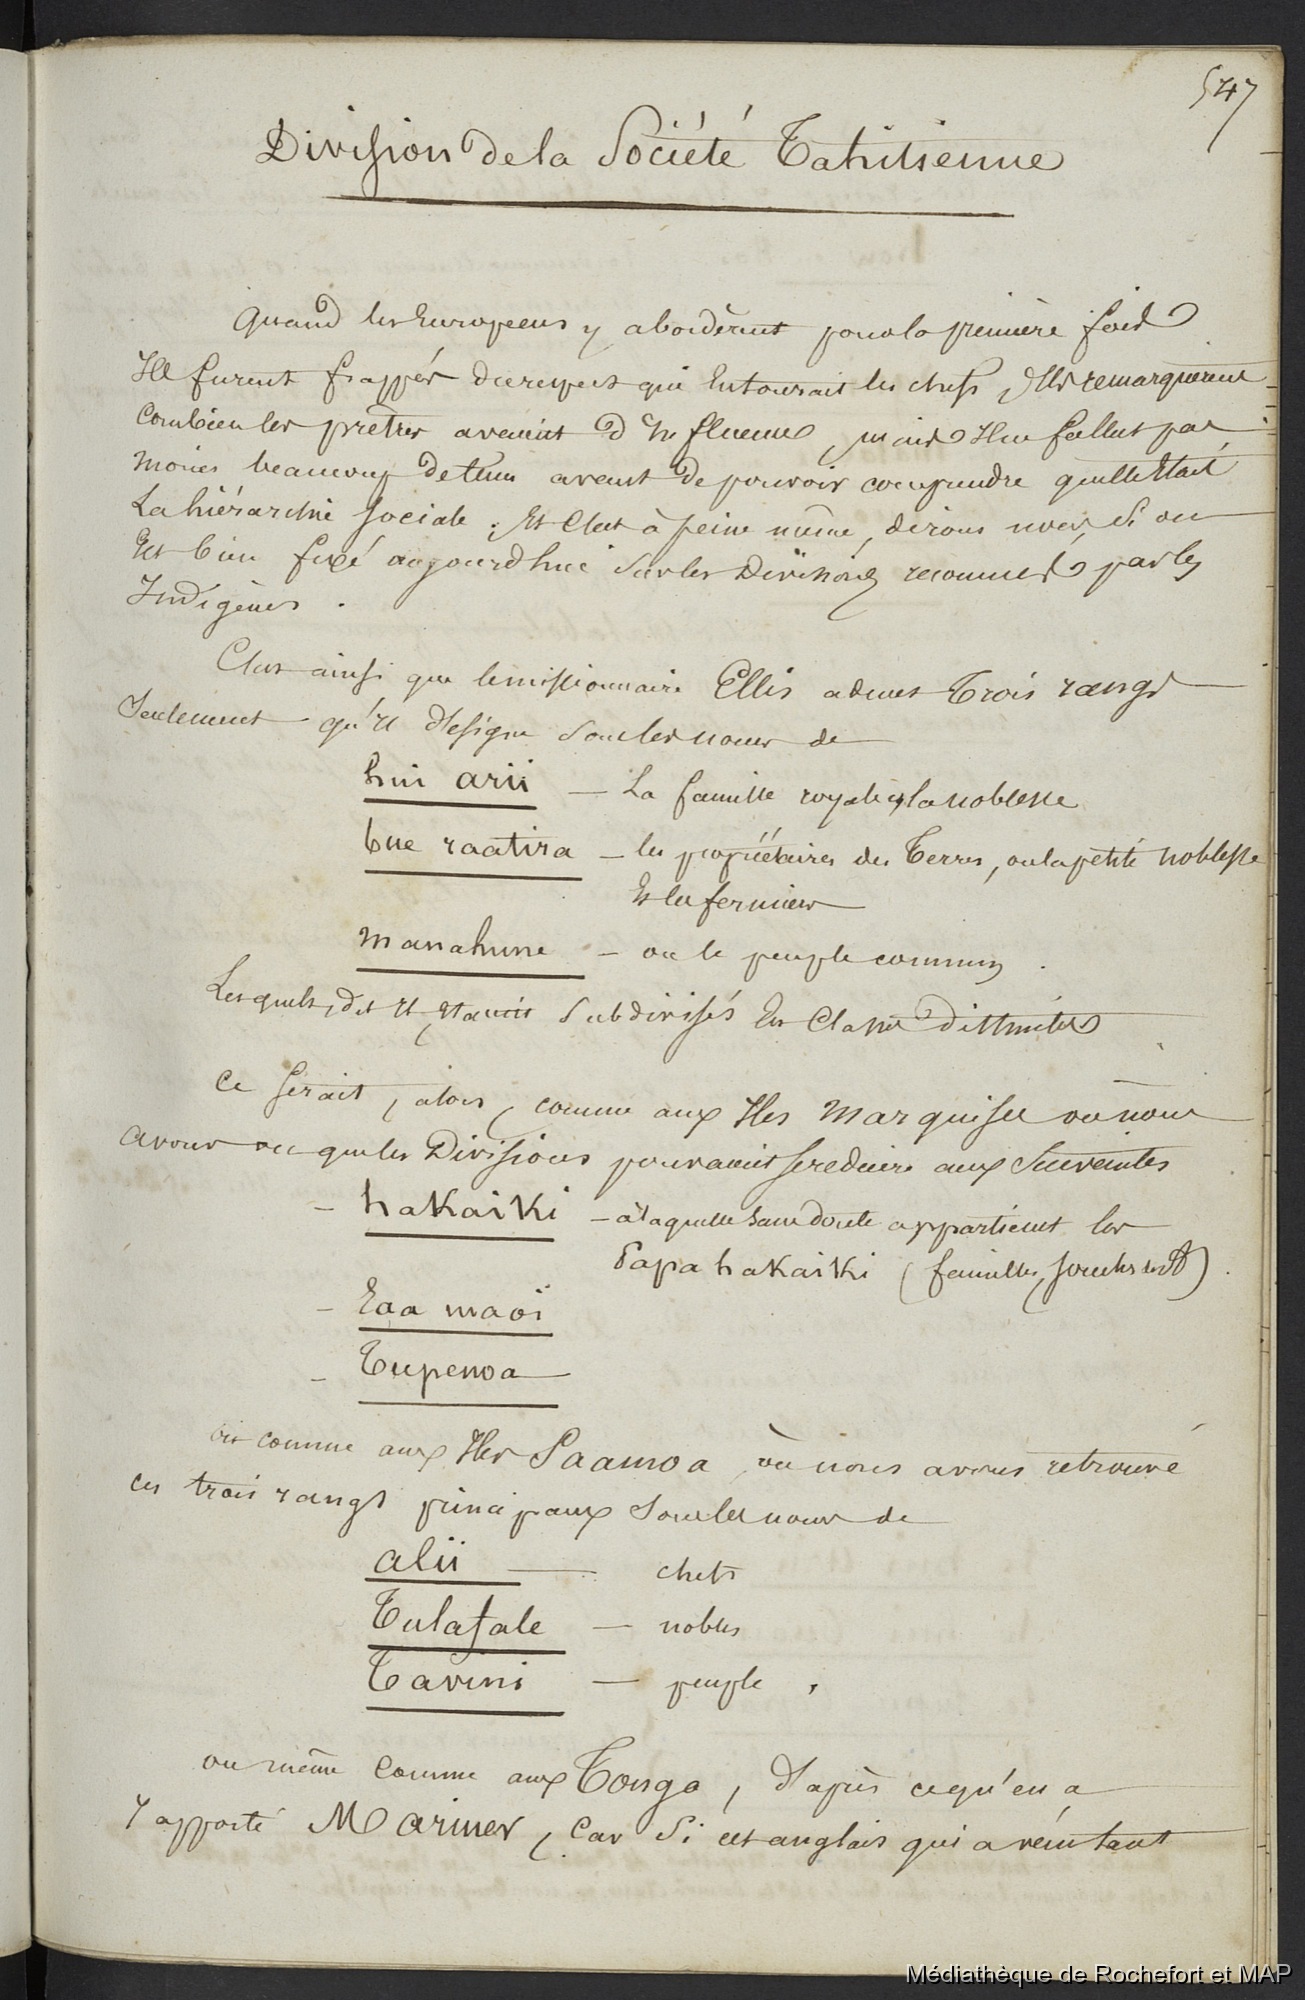 547
Division de la Société Tahitienne
Quand les Européens y abordèrent pour la première fois
Ils furent frappés du respect qui Entourait les chefs, Ils remarquèrent
Combien les prêtres avaient d'Influence, mais Il ne fallut pas
moins beaucoup de tems avant de pouvoir comprendre quelle Etait
La hiérarchie Sociale. Et C'est à peine même, dirons nous, si on
Est bien fixé aujourd'hui Sur les Divisions reconnues par les
Indigènes.
C'est ainsi que le missionnaire Ellis admet Trois rangs
Seulement qu'Il désigne Sous les noms de
hui arii — La famille royale & la noblesse
bue raatira — les propriétaires des Terres, ou la petite noblesse
Et les fermiers
manahune — ou le peuple commun.
Lesquels, dit Il, Etaient Subdivisés En Classes distinctes
Ce serait, alors, comme aux Iles Marquises où nous
avons vu que les Divisions pouvaient se reduire aux Suivantes
- hakaiki — à laquelle sans doute appartient les
Papa hakaiki (familles, souches des)
- Eaa maoi
- Tupenoa
ou comme aux Iles Saamoa, où nous avons retrouvé
ces trois rangs principaux Sous les noms de
alii — chefs
Tulafale — nobles
Tavini — peuple.
ou même Comme aux Tonga, d'après ce qu'en a
rapporté Mariner, Car Si cet anglais qui a vécu tant
Médiathèque de Rochefort et MAP